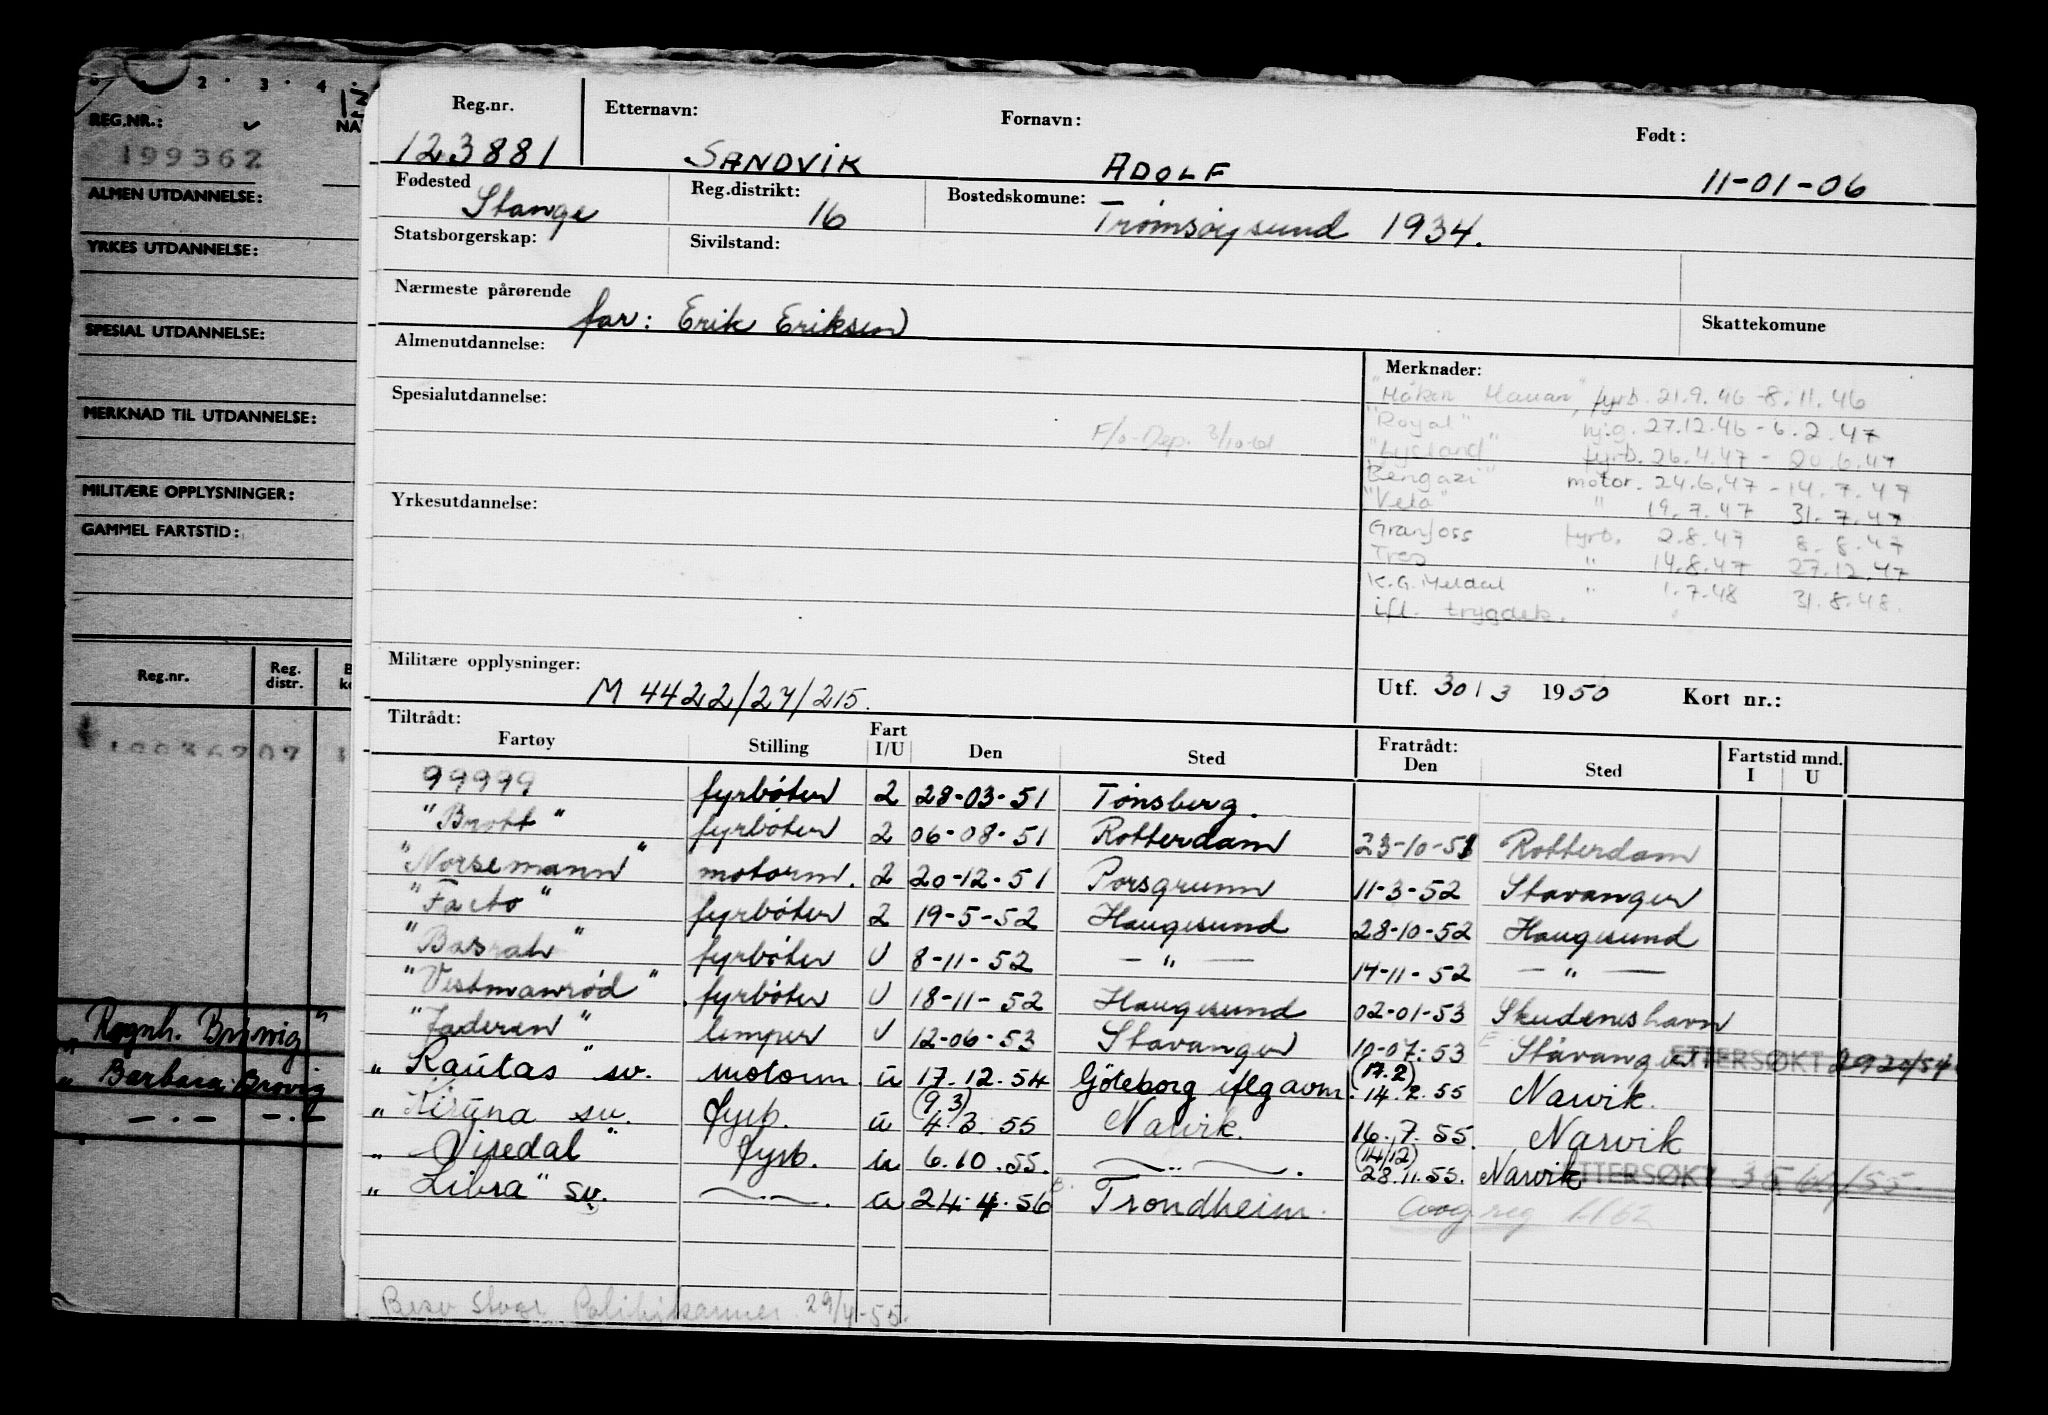 2 · 3 · 4 ·
REG.NR.:
199362
ALMEN UTDANNELSE:
YRKES UTDANNELSE:
SPESIAL UTDANNELSE:
MERKNAD TIL UTDANNELSE:
MILITÆRE OPPLYSNINGER:
GAMMEL FARTSTID:
Reg.nr. Reg. distr.
Ragnh. Brøvig"
" Barbara Brovig
— . — — . —
Reg.nr. Etternavn: Fornavn: Født:
123881 SANDVIK ADOLF 11-01-06
Fødested Reg.distrikt: Bostedskomune:
Stange 16 Tromsøysund 1934.
Statsborgerskap: Sivilstand:
Nærmeste pårørende far: Erik Eriksen Skattekomune
Almenutdannelse: Merknader:
"Håkon Hauan" fyrb. 21.9.46 - 8.11.46
Spesialutdannelse: "Royal" 27.12.46 - 6.2.47
F/o-Dep. 3/10-61 "Lysland" fyrb. 26.4.47 - 20.6.47
Bengazi" motor. 24.6.47 - 14.7.47
Yrkesutdannelse: "Vela" " 19.7.47 31.7.47
Granfoss fyrb. 2.8.47 8.8.47
Tres " 14.8.47 27.12.47
K.G. Meldal " 1.7.48 31.8.48.
ifl. trygdek.
Militære opplysninger: M 4422/27/215. Utf. 30/3 1950 Kort nr.:
Tiltrådt: Fratrådt: Fartstid mnd.
Fartøy Stilling Fart I/U Den Sted Den Sted I U
99999 fyrbøter 2 28-03-51 Tønsberg.
"Brott" fyrbøter 2 06-08-51 Rotterdam 23-10-51 Rotterdam
"Norsemann" motorm. 2 20-12-51 Porsgrunn 11-3-52 Stavanger
"Facto" fyrbøter 2 19-5-52 Haugesund 28-10-52 Haugesund
"Basrah" fyrbøter U 8-11-52 — " — 14-11-52 — " —
"Vestmanrød" fyrbøter U 18-11-52 Haugesund 02-01-53 Skudeneshavn
"Jaderen" lemper U 12-06-53 Stavanger 10-07-53 Stavanger ETTERSØKT
" Rautas" sv. motorm. u 17.12.54 Göteborg iflg avm. (17.2) 14.2.55 Narvik.
" Kiruna sv. fyrb. u (9.3) 4.3.55 Narvik. 16.7.55. Narvik
" Visedal" fyrb. u 6.10.55. — " — . (14/12) 28.11.55. Narvik ETTERSØKT
" Libra" sv. — " — u 24.4.56 Trondheim.
29/4-55.